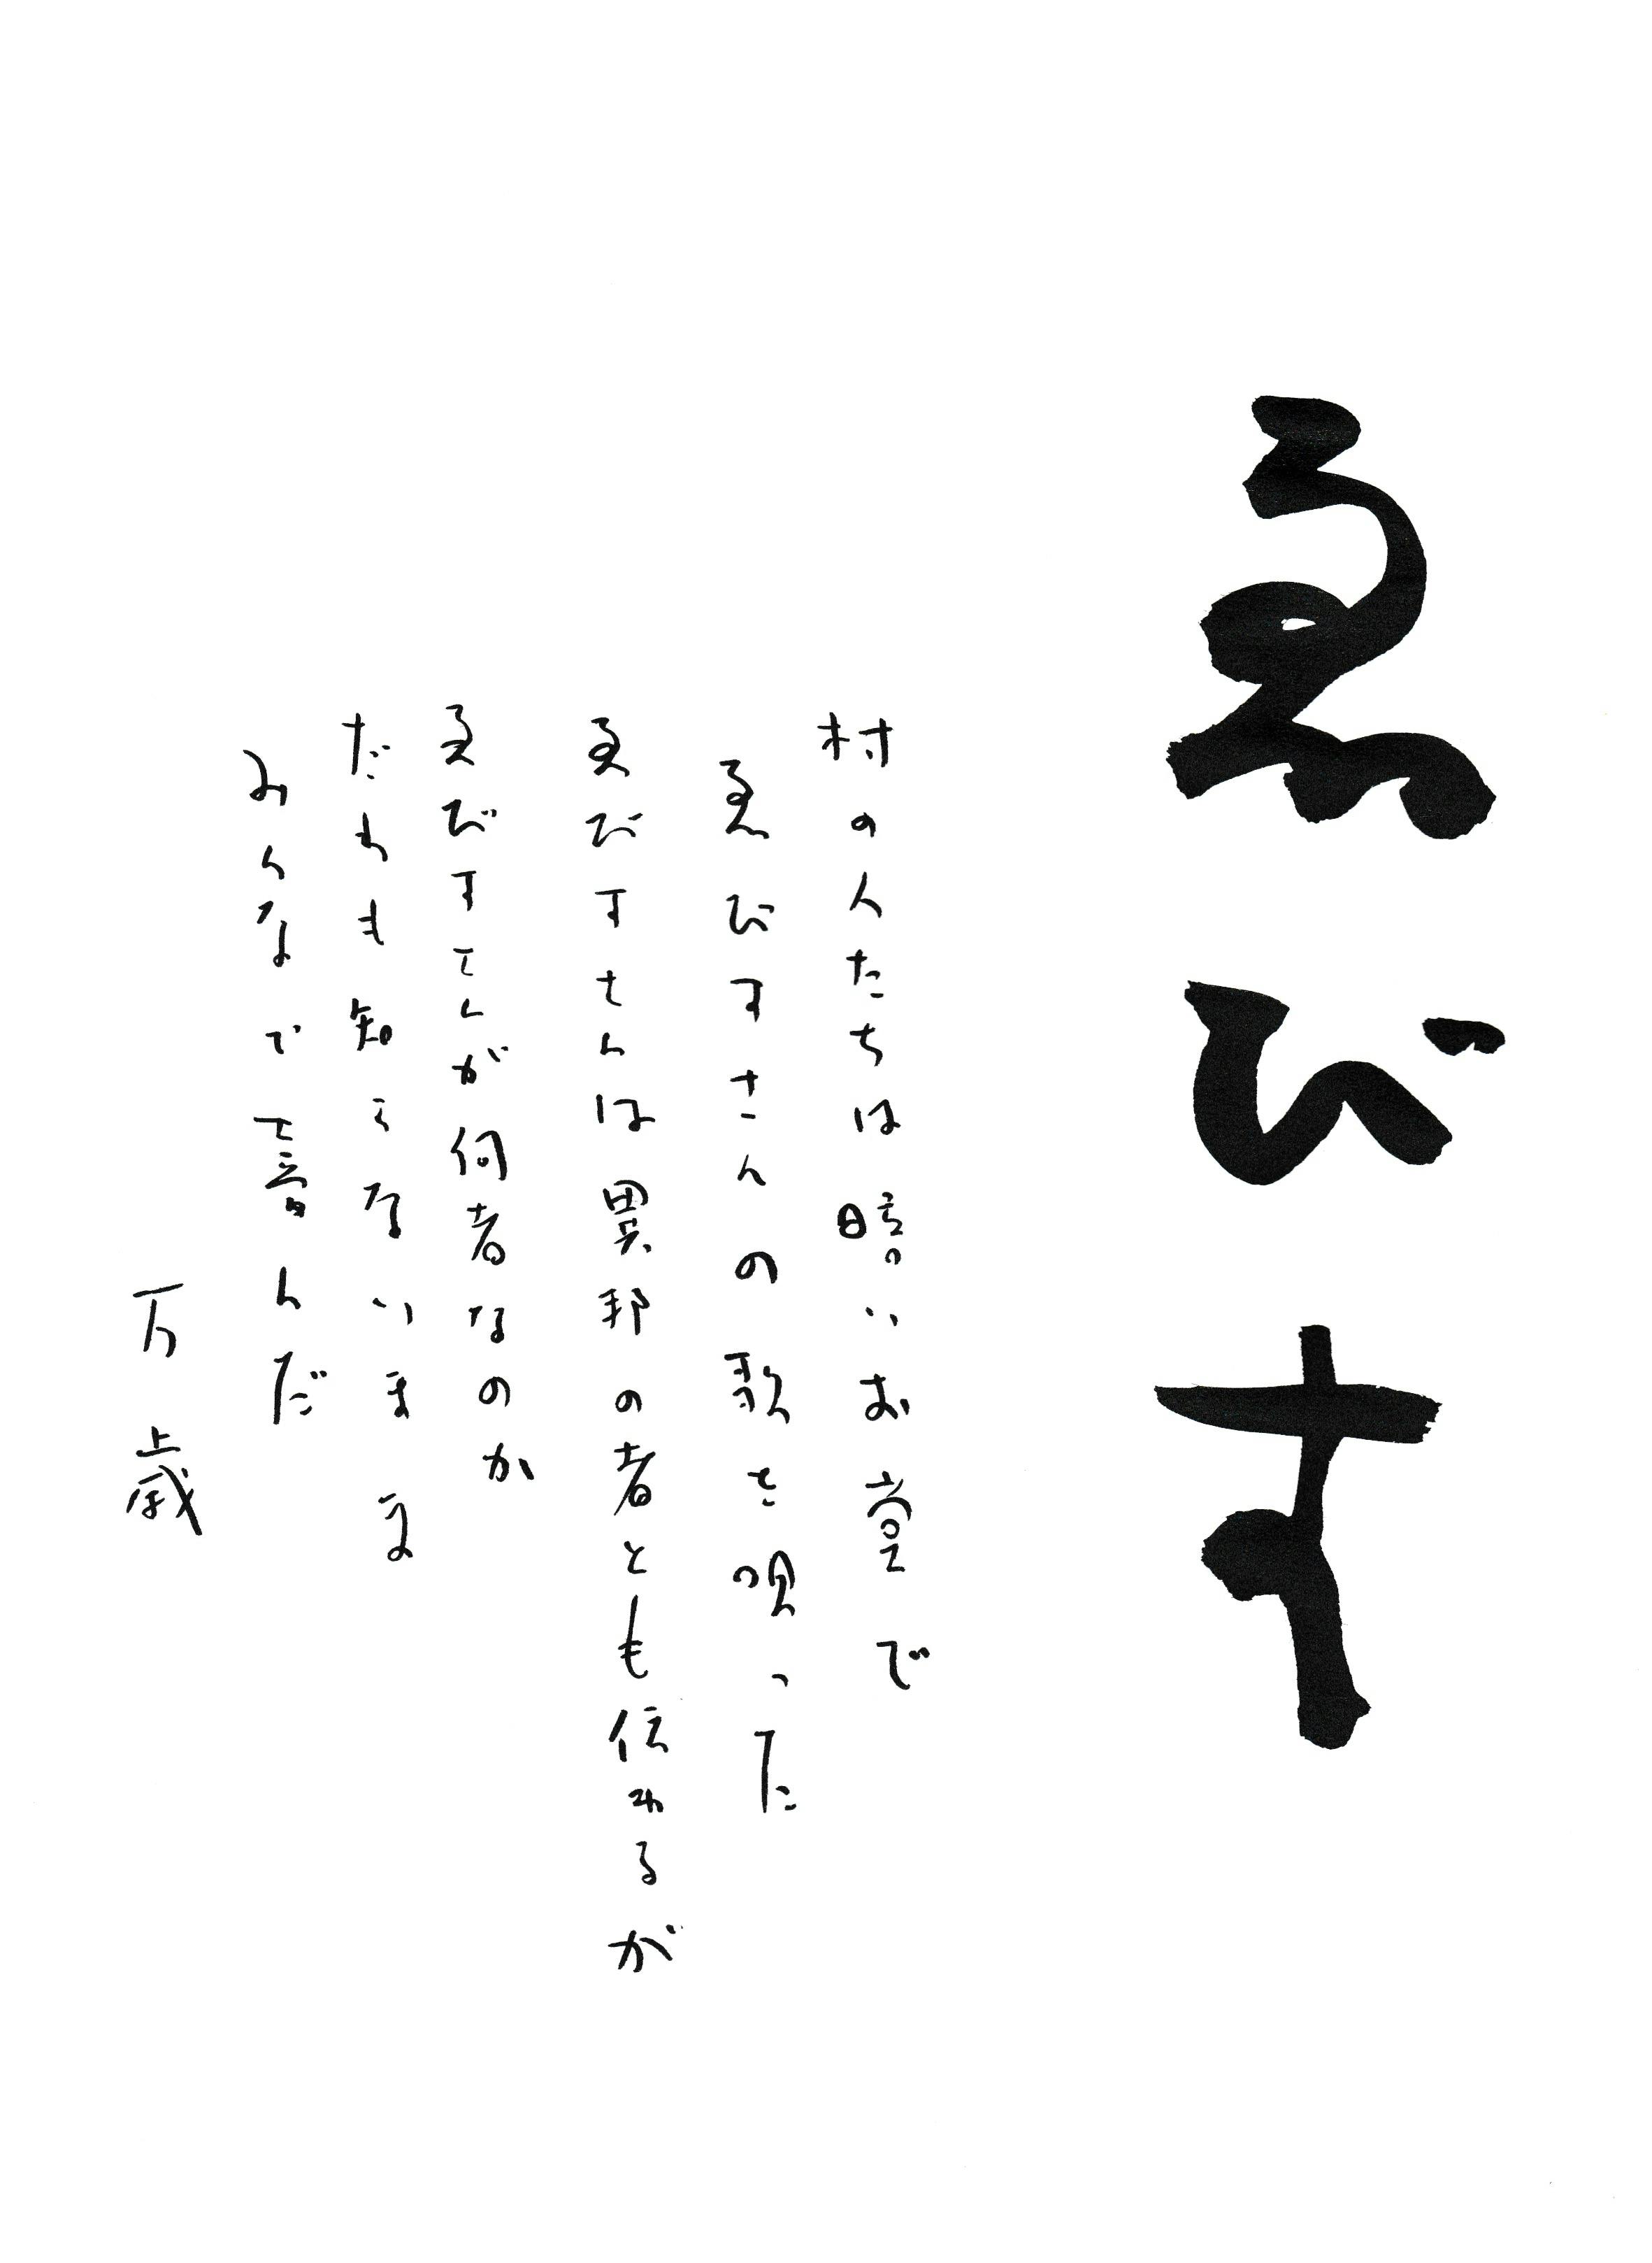 ゑびす
村の人たちは暗いお堂で
ゑびすさんの歌を唄った
ゑびすさんは異邦の者とも伝わるが
ゑびすさんが何者なのか
だれも知らないまま
みんなで喜んだ
万歳